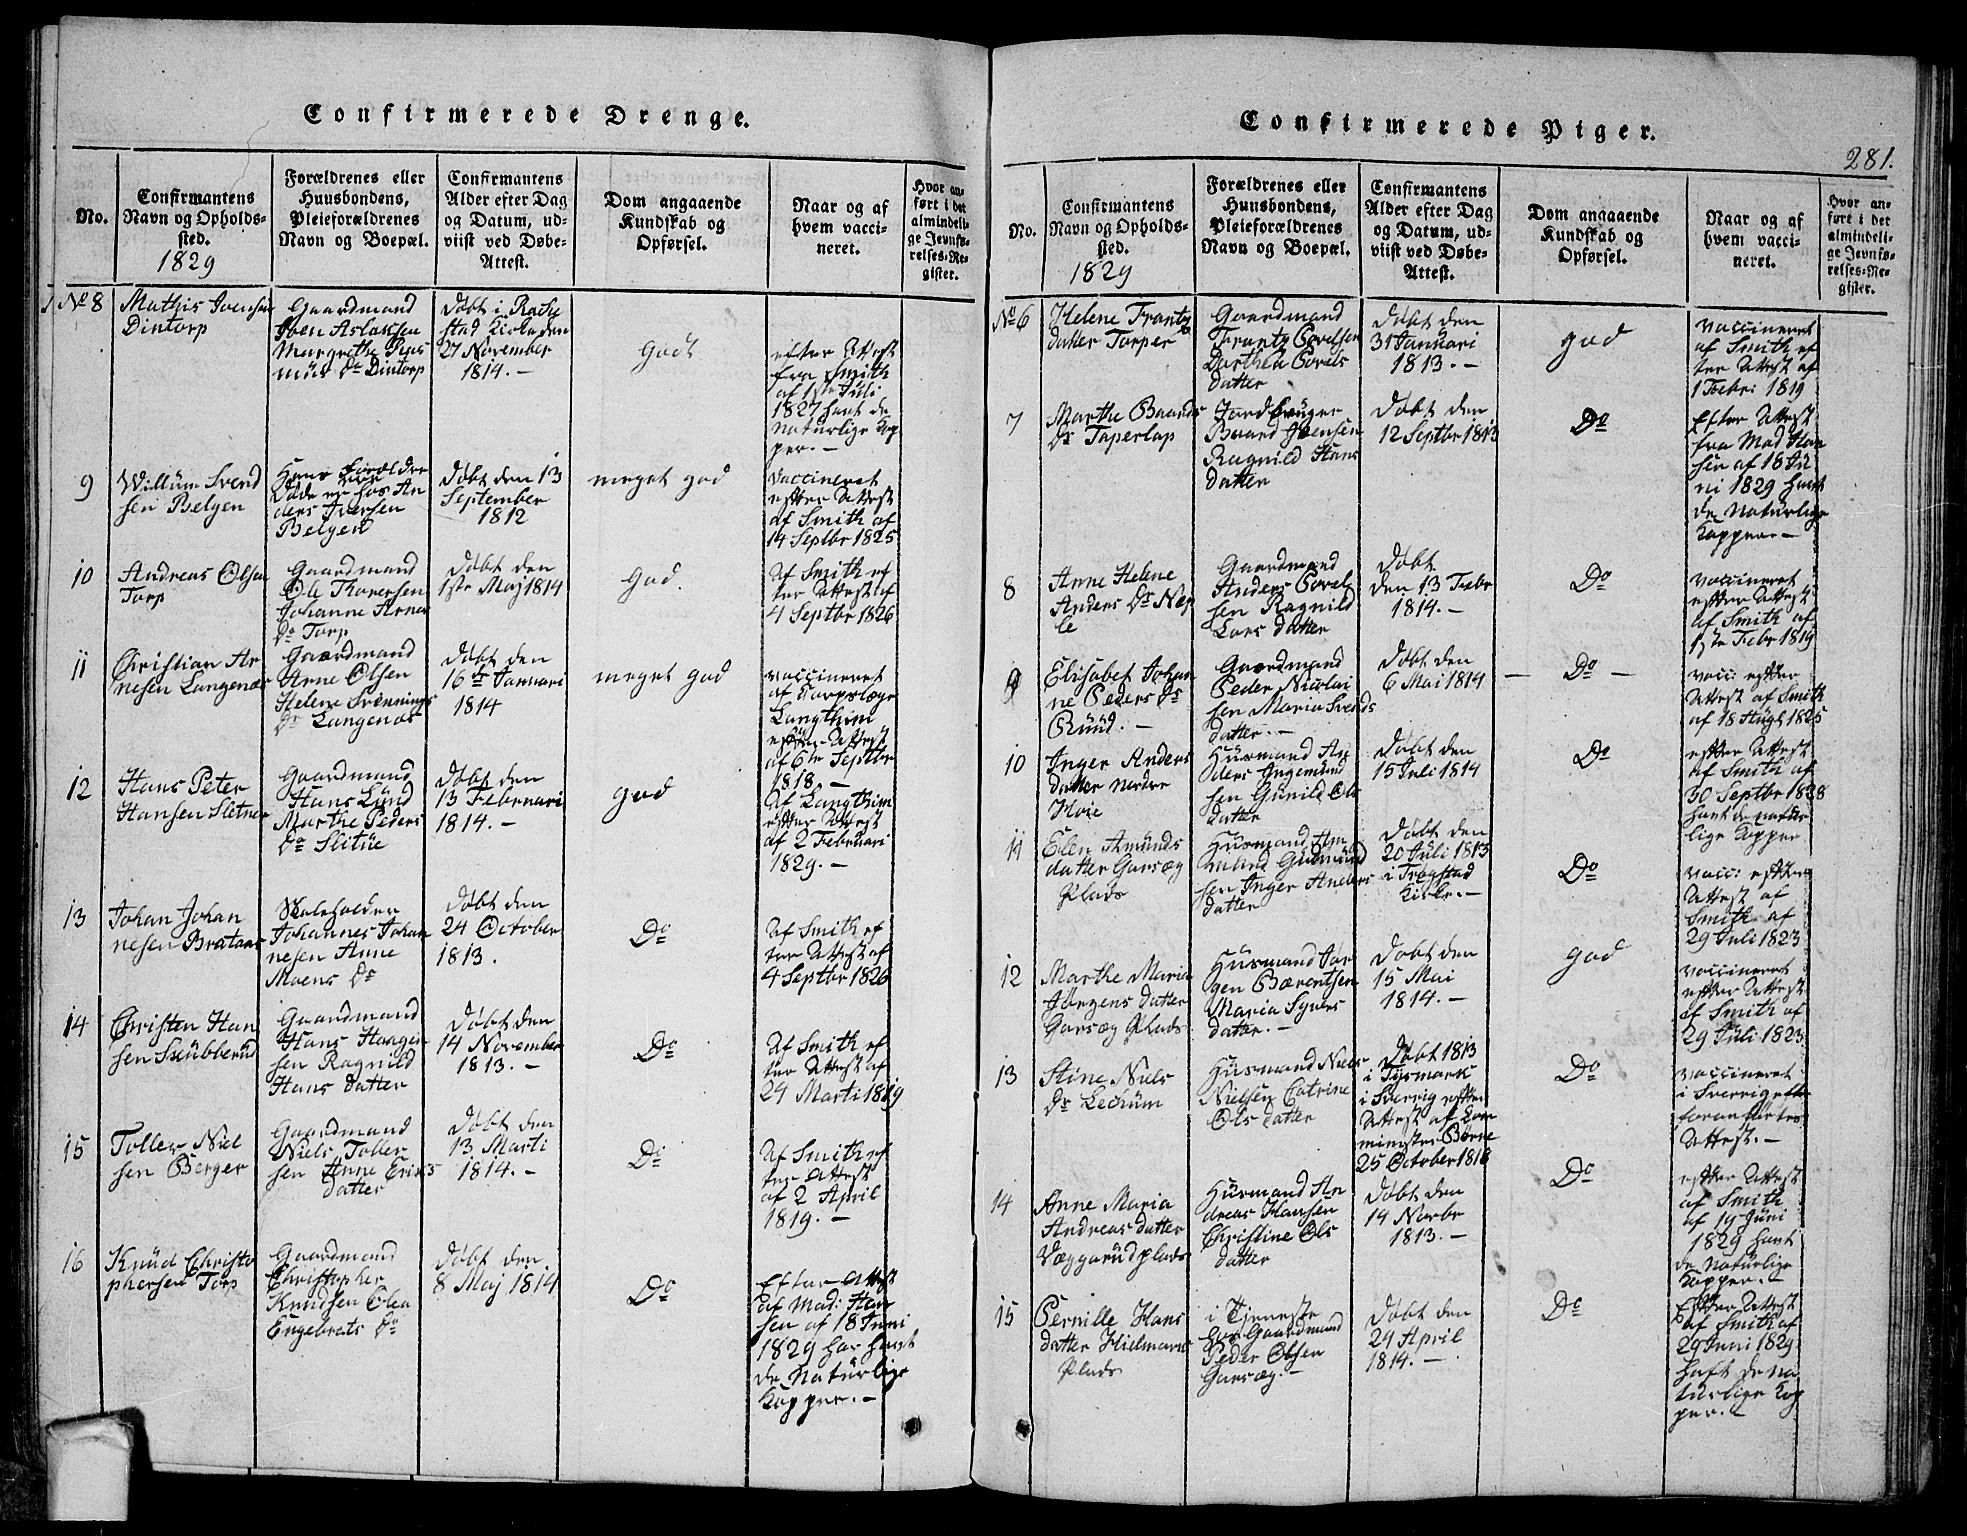 Confirmerede Drenge.
No.
Confirmantens
Navn og Opholds-
sted.
1829
Forældrenes eller
Huusbondens,
Pleieforældrenes
Navn og Boepæl.
Confirmantens
Alder efter Dag
og Datum, ud-
viist ved Døbe-
Attest.
Dom angaaende
Kundskab og
Opførsel.
Naar og af
hvem vacci-
neret.
Hvor an-
ført i det
almindeli-
ge Jevnfø-
relses-Re-
gister.
No 8
Mathis Ivensen
Dintorp
Gaardmand
Iven Aslaksen
Margrethe
Do Dintorp
Døbt i Rake
stad Kirke den
27 November
1814. -
Godt
efter Attest
fra Smith
af 1ste Juli
1827 havt de
naturlige Kop
per. -
9
Willum Svend
sen Belgen
Hans Forældre
Døde er hos An
ders Iversen
Belgen
Døbt den 13
September
1812
meget god
vaccineret
efter Attest
af Smith af
14 Septbr 1825
10
Andreas Olsen
Torp
Gaardmand
Ole Thoresen
Johanne Arnes
Do Torp
Døbt den
1ste Maj 1814
God.
Af Smith ef
ter Attest af
4 Septbr 1826
11
Christian Ar
nesen Langenæs
Gaardmand
Arne Olsen
Helene Svennings
Dr Langenæs
Døbt den
16de Januari
1814
meget god
vaccineret
af Corpslæge
Langthim
efter Attest
af 6te Septbr
1818. -
12
Hans Peter
Hansen Sletner
Gaardmand
Hans Lund
Marthe Peders
Do Slitue
Døbt den
13 Februari
1814. -
god
Af Langthim
efter Attest
af 2 Februari
1829. -
13
Johan Johan
nesen Brataas
Skoleholder
Johannes Johan
nesen Anne
Moens Dr
Døbt den
24 October
1813.
Do
Af Smith ef
ter Attest af
4 Septbr 1826
14
Christen Han
sen Skubberud
Gaardmand
Hans Haagen
sen Ragnild
Hans datter
Døbt den
14 November
1813. -
Do
Af Smith ef
ter Attest af
24 Marti 1819
15
Toller Niel
sen Berger
Gaardmand
Niels Toller
sen Anne Eriks
datter
Døbt den
13 Marti
1814. -
Do
Af Smith ef
ter Attest
af 2 April
1819. -
16
Knud Christo
phersen Torp
Gaardmand
Christopher
Knudsen Olea
Engebrets Do
Døbt den
8 Maj 1814
Do
Efter Attest
af Mad: Han
sen af 18 Juni
1829 har havt
de Naturlige
Kopper. -
Confirmerede Piger.
281.
No.
Confirmantens
Navn og Opholds-
sted.
1829
Forældrenes eller
Huusbondens,
Pleieforældrenes
Navn og Boepæl.
Confirmantens
Alder efter Dag
og Datum, ud-
viist ved Døbe-
Attest.
Dom angaaende
Kundskab og
Opførsel.
Naar og af
hvem vacci-
neret.
Hvor an-
ført i det
almindeli-
ge Jevnfø-
relses-Re-
gister.
No 6
Helene Frantz
datter Torper
Gaardmand
Frantz Povelsen
Dorthea Povels
datter
Døbt den
31 Januari
1813. -
god
vaccineret
af Smith ef
ter Attest af
1 Febr: 1819
7
Marthe Baards
Dr Taperlap
Jordbruger
Baard Jensen
Ragnild Hans
datter
Døbt den
12 Septbr 1813
Do
Efter Attest
fra Mad Han
sen af 18 Ju
ni 1829 havt
de Naturlige
Kopper. -
8
Anne Helene
Anders Dr Næp
le
Gaardmand
Anders Povel
sen Ragnild
Lars datter
Døbt
den 13 Febr
1814. -
Do
vaccineret
efter Attest
af Smith af
1ste Febr 1819
9
Elisabet Johan
ne Peders Dr
Ruud. -
Gaardmand
Peder Nicolai
sen Maria Svends
datter. -
Døbt den
6 Mai 1814
- Do -
vacc: efter
Attest af Smith
af 18 1825
10
Inger Anders
datter Nordre
Hoie
Husmand An
ders Ingemund
sen Gunild Ols
datter
Døbt den
15 Juli 1814
Do
efter Attest
af Smith af
30 Septbr 1828
havt de natur
lige Kopper
11
Elen Amunds
datter Garsæg
Plads
Husmand Am
mund Gudmund
sen Inger Anders
datter
Døbt den
20 Juli 1813
i Trøgstad
Kirke. -
Do
vacc: efter
Attest af
Smith af
29 Juli 1823
12
Marthe Maria
Jørgens datter
Garsæg Plads
Husmand Jør
gen Bærentsen
Maria Syvers
datter. -
Døbt den
15 Mai
1814. -
god
vaccineret
efter Attest
af Smith af
29 Juli 1823
13
Stine Niels
Dr Lechum
Husmand Niels
Nielsen Catrine
Ols datter
Døbt 1813
i Tysmark
i Sverrig efter
Attest af Com
minister Børne
25 October 1818
Do
vaccineret
i Sverrig efter
foranførte
Attest. -
14
Anne Maria
Andreas datter
Væggerud plads
Husmand An
dreas Hansen
Christine Ols
datter
Døbt den
14 Novbr
1813. -
Do
efter Attest
af Smith
af 14 Juni
1829 havt
de Naturlige
Kopper. -
15
Pernille Hans
datter Hielmark
Plads
i Tjeneste
hos Gaardmand
Peder Olsen
Garsæg. -
Døbt den
24 April
1814. -
Do
Efter Attest
af Smith af
29 Juni 1829
haft de na
turlige Kop
per. -